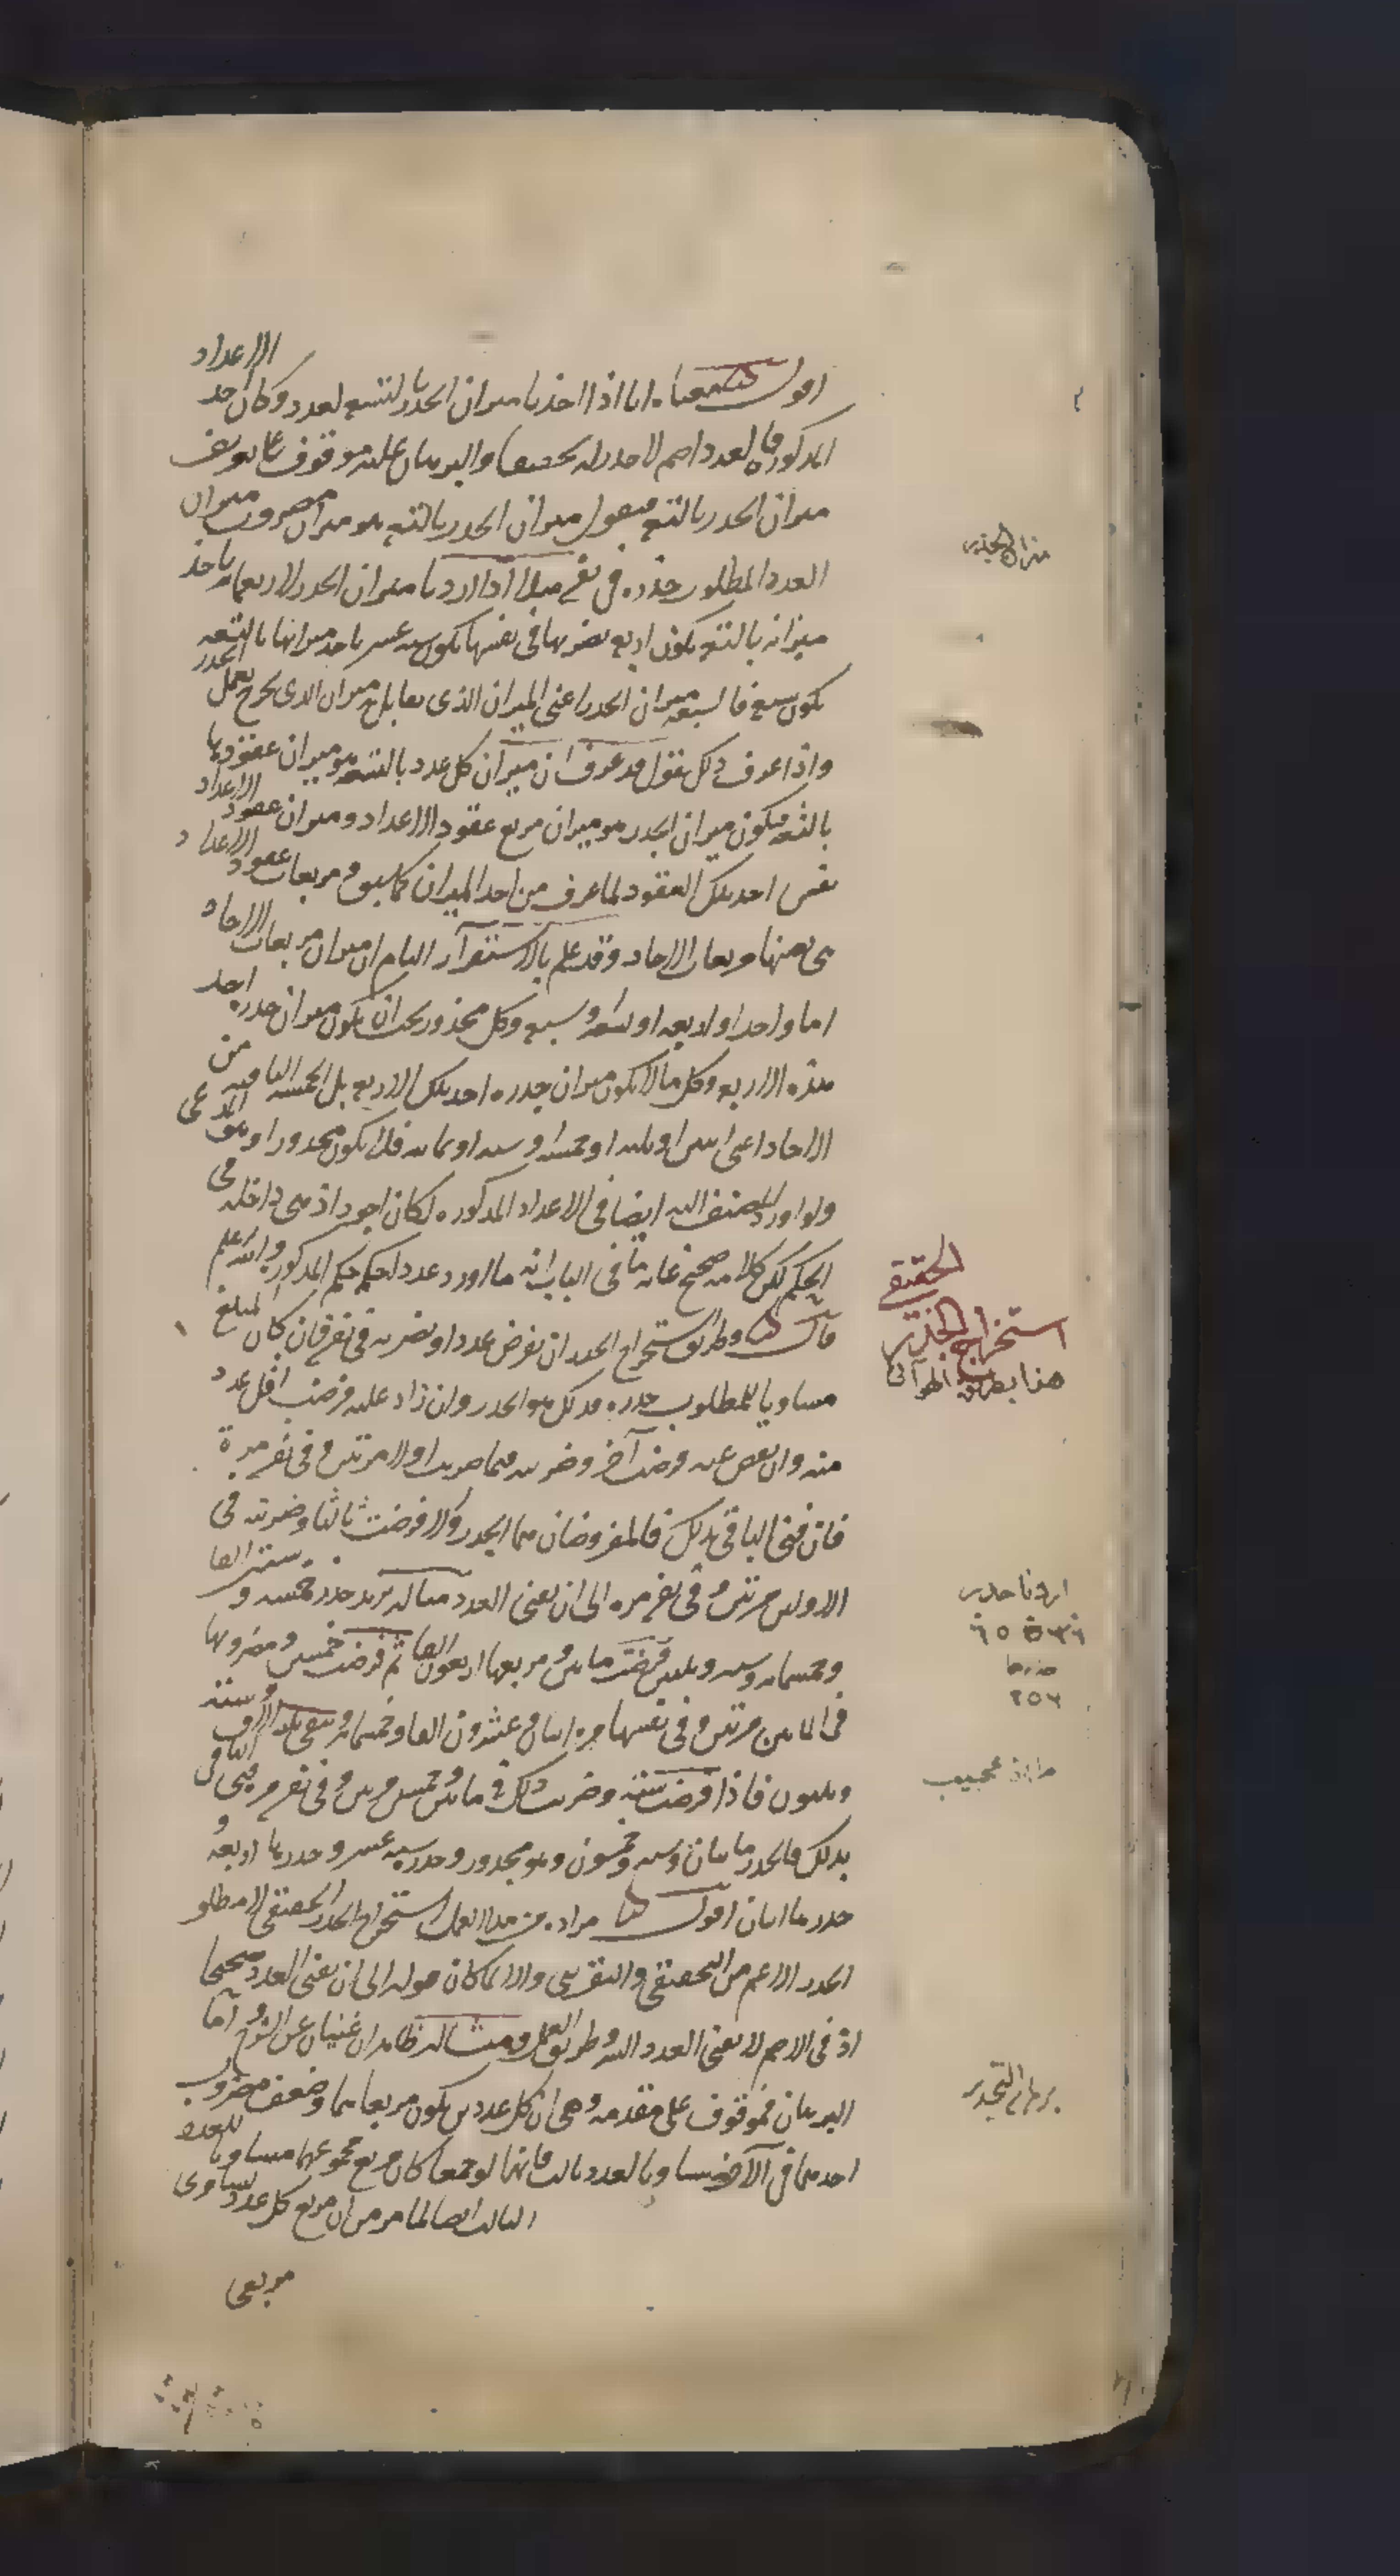 اقول معناه انا اذا اخذنا ميزان الجذر بالتسع لعدد وكان احد الاعداد
المذكورة فالعدد اصم لا جذر له تحقيقا والبرهان عليه موقوف على تعريف
ميزان الجذر بالتسعة فنقول ميزان الجذر بالتسعة هو ميزان مضروب ميزان
العدد المطلوب جذره في نفسه مثلا اذا اردنا ميزان الجذر لاربعمائة ناخذ
ميزانه بالتسعة يكون اربع نضربها في نفسها يكون ستة عشر ناخذ ميزانها بالتسعة
يكون سبع فالسبعة ميزان الجذر اعني الميزان الذي يقابل ميزان الذي يخرج بعمل الجذر
واذا عرف ذلك نقول قد عرف ان ميزان كل عدد بالتسعة هو ميزان عقودها
بالتسعة فيكون ميزان الجذر هو ميزان مربع عقود الاعداد وميزان عقود الاعداد
نفس احد تلك العقود لما عرف من اخذ الميزان كما سبق ومربعات عقود الاعداد
هي بعينها مربعات الاحاد وقد علم بالاستقراء التام ان ميزان مربعات الاحاد
اما واحد او اربعة او تسعة وسبع وكل مجذور يجب ان يكون ميزان جذره احد
هذه الاربع وكل ما لا يكون ميزان جذره احد تلك الاربع بل الخمسة الباقية من
الاحاد اعني اثنين او ثلثة او خمسة او ستة او ثمانية فلا يكون مجذورا وهو المدعى
ولو اورد المصنف الستة ايضا في الاعداد المذكورة لكان اجود اذ هي داخلة في
الحكم لكن كلامه صحيح غاية ما في الباب انه ما اورد عددا حكمه حكم المذكور والله اعلم
قال وطريق استخراج الجذر ان تفرض عددا وتضربه في نفسه فان كان المبلغ
مساويا للمطلوب جذره فذلك هو الجذر وان زاد عليه فرضت اقل عدد
منه وان نقص عنه فرضت آخر وضربته فيما ضربت اولا مرتين وفي نفسه مرة
فان فني الباقي بذلك فالمفروضان هما الجذر والا فرضت ثالثا وضربته في
الاولين مرتين وفي نفسه مرة الى ان يفنى العدد مثاله نريد جذر خمسة وستين الفا
وخمسمائة وستة وثلثين فرضت مائتين ومربعها اربعون الفا ثم فرضت خمسين ومضروبها
في المائتين مرتين وفي نفسها مرة اثنان وعشرون الفا وخمسمائة وتبقى ثلثة الاف وستة
وثلثون فاذا فرضت ستة وضربت ذلك في مائتين وخمسين مرتين وفي نفسه مرة فني الباقي
بذلك فالجذر مائتان وستة وخمسون وهو مجذور وجذره ستة عشر وجذرها اربعة و
جذرها اثنان اقول مراده من هذا العمل استخراج الجذر الحقيقي لا مطلق
الجذر الاعم من التحقيقي والتقريبي والا لما كان قوله الى ان يفنى العدد صحيحا
اذ في الاصم لا يفنى العدد البتة وطريق العمل ومثاله ظاهران غنيان عن الشرح واما
البرهان فموقوف على مقدمة وهي ان كل عددين يكون مربعاهما وضعف مضروب
احدهما في الآخر مساويا لعدد ثالث فانهما لو جمعا كان مربع مجموعهما مساويا للعدد
الثالث ايضا لما مر من ان مربع كل عدد يساوي
مربعي
ميزان الجذر
استخراج الجذر الحقيقي
هذا بطريق الهوائي
اردنا جذر
٦٥٥٣٦
جذرها
٢٥٦
برهان التجذير